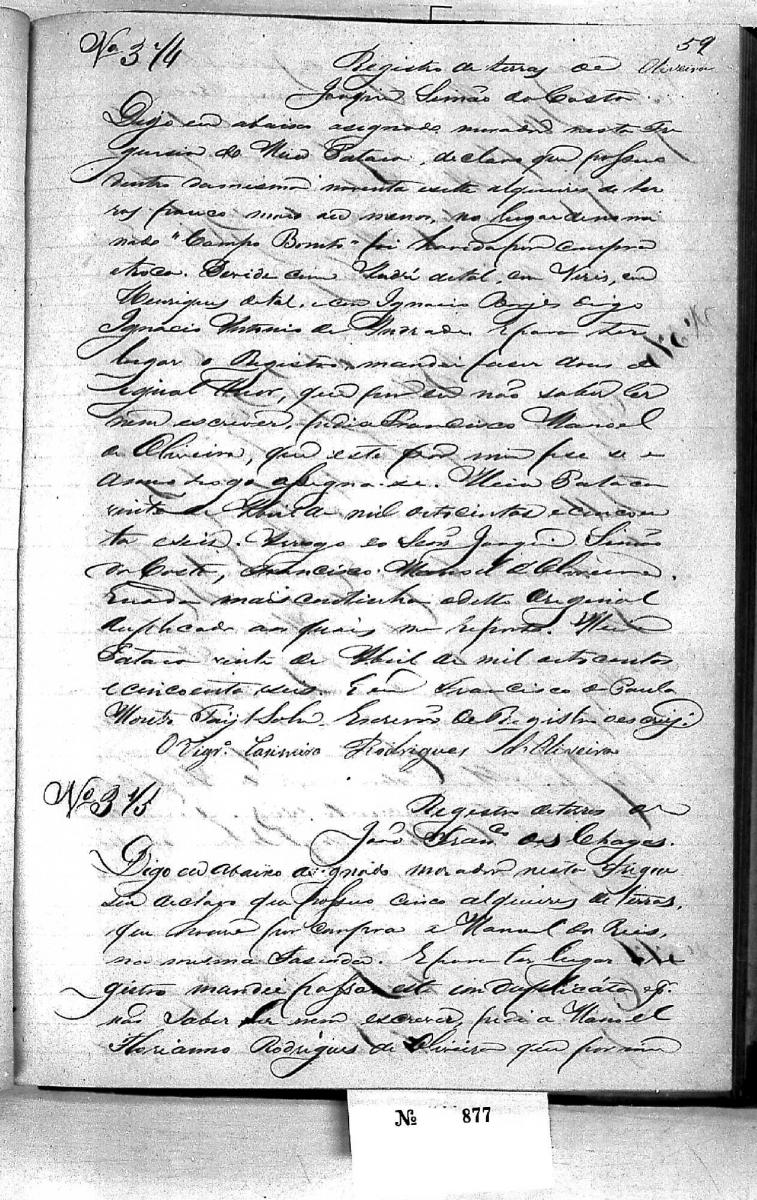 59
Oliveira
Nº 374
Registro de terras de
Joaqim Simão da Costa
Digo eu abaixo asignado morador nesta Fre
guesia de Meia Pataca, declaro que possuo
dentro da mesma noventa e sete alqueires de ter
ras pouco mais ou menos, no lugar denomi
nado "Campo Bonito" foi havida por compra
e troca. Devide com André de tal, com
Henriques de tal, e com Ignacio Borges digo
Ignacio Antonio de Andrade. E para ter
lugar o Registro, mandei faser dous de
iginal theor, que por eu não saber ler
nem escrever, pedi a Francisco Manoel
de Oliveira, que este por mim fise se e
a meu rogo asigna-se. Meia Pataca
vinte de Abril de mil oitocentos e cincoen
ta e seis. Arrogo do Senr. Joaqim Simão
da Costa, Francisco Manoel de Oliveira.
E nada mais continha o ditto Original
duplicado aos quais me reporto. Meia
Pataca vinte de Abril de mil oitocentos
e cincoenta e seis. E eu Francisco de Paula
Escrivão do Registro o escrevy.
O Vigrº. Casimiro Rodrigues d'Oliveira
Nº 375
Registro de terras de
João Franco. das Chagas.
Digo eu abaixo asignado morador nesta Fregue
sia declaro que possuo cinco alqueires de terras,
que houve por compra a Manoel dos Reis,
na mesma Fasenda. E para ter lugar o Re
gistro mandei passar este em duplicata e p.
não saber ler nem escrever pedi a Manoel
Florianno Rodrigues de Oliveira que por mim
Nº 877